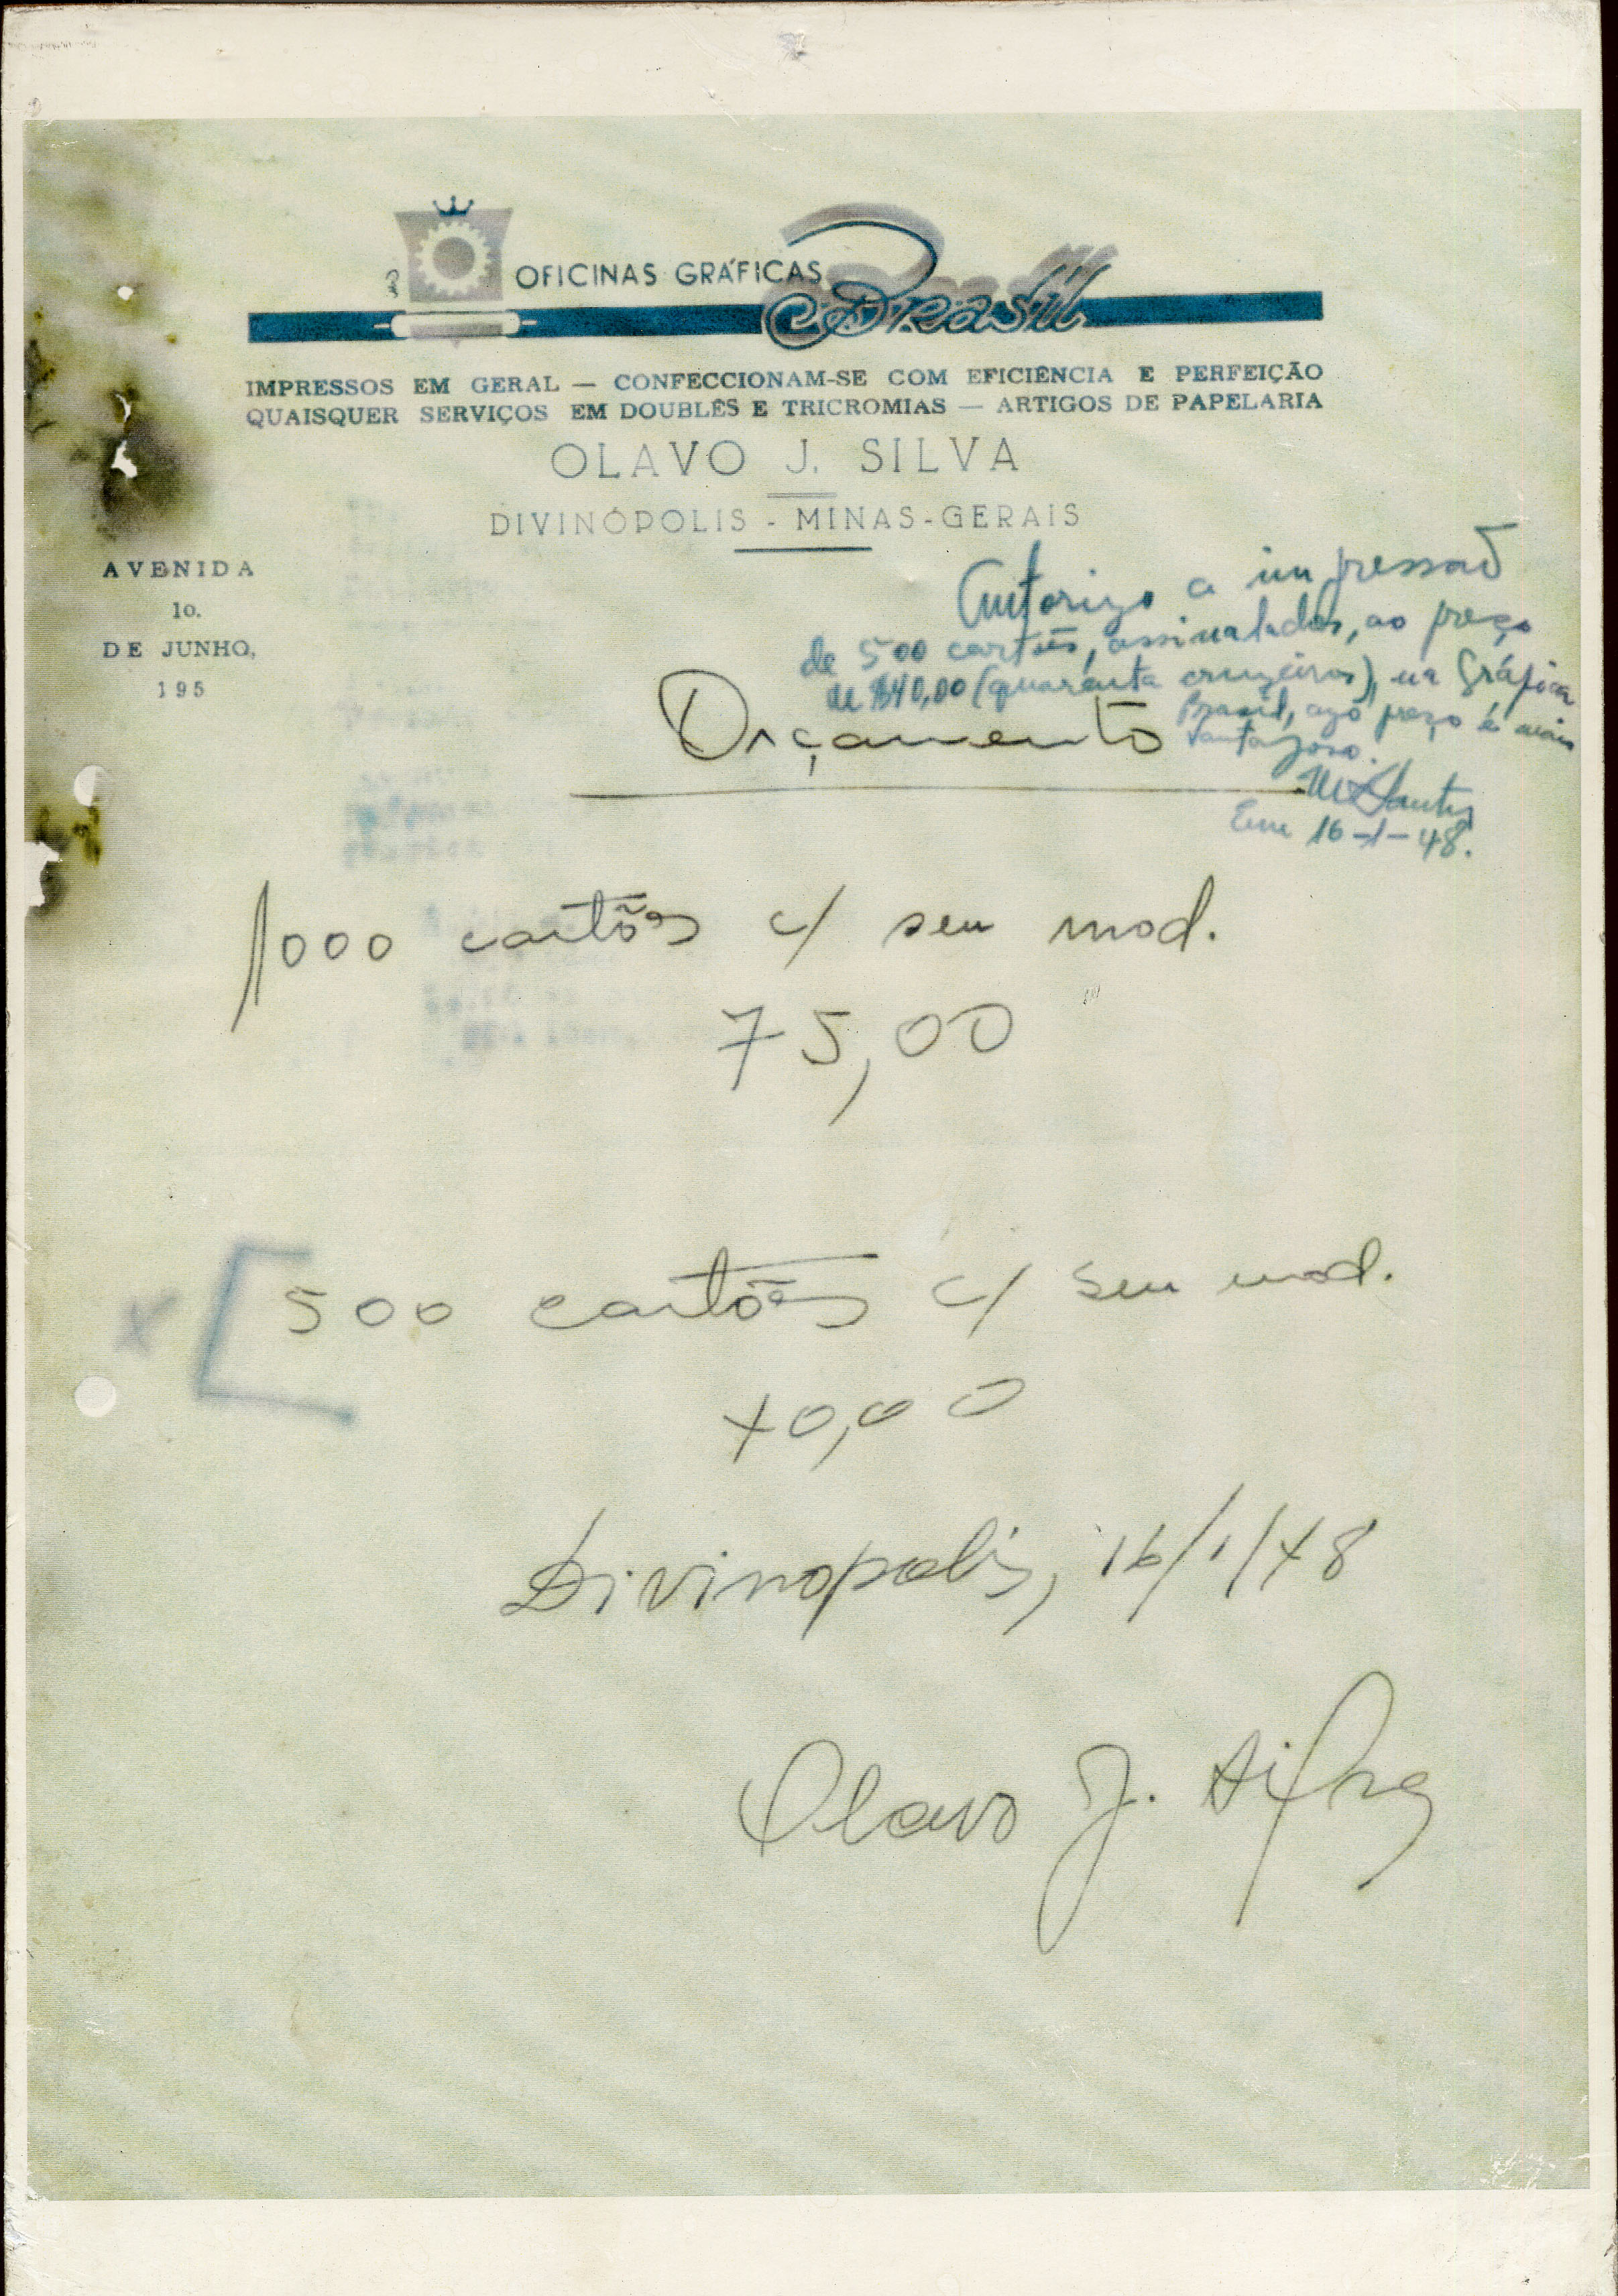 OFICINAS GRÁFICAS Brasil
IMPRESSOS EM GERAL — CONFECCIONAM-SE COM EFICIÊNCIA E PERFEIÇÃO
QUAISQUER SERVIÇOS EM DOUBLÊS E TRICROMIAS — ARTIGOS DE PAPELARIA
OLAVO J. SILVA
DIVINÓPOLIS - MINAS-GERAIS
AVENIDA
1o.
DE JUNHO,
195
Autorizo a impressão
de 500 cartões, assinalados, ao preço
de $40,00 (quarenta cruzeiros), na Gráfica
Brasil, cujo preço é mais
vantajoso.
Santos
Em 16-1-48.
Orçamento
1000 cartões c/ seu mod.
75,00
X [ 500 cartões c/ seu mod.
40,00
Divinopolis, 16/1/48
Olavo J. Silva